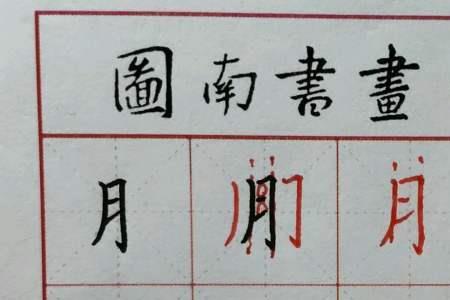 圖南書畫
月 月 月